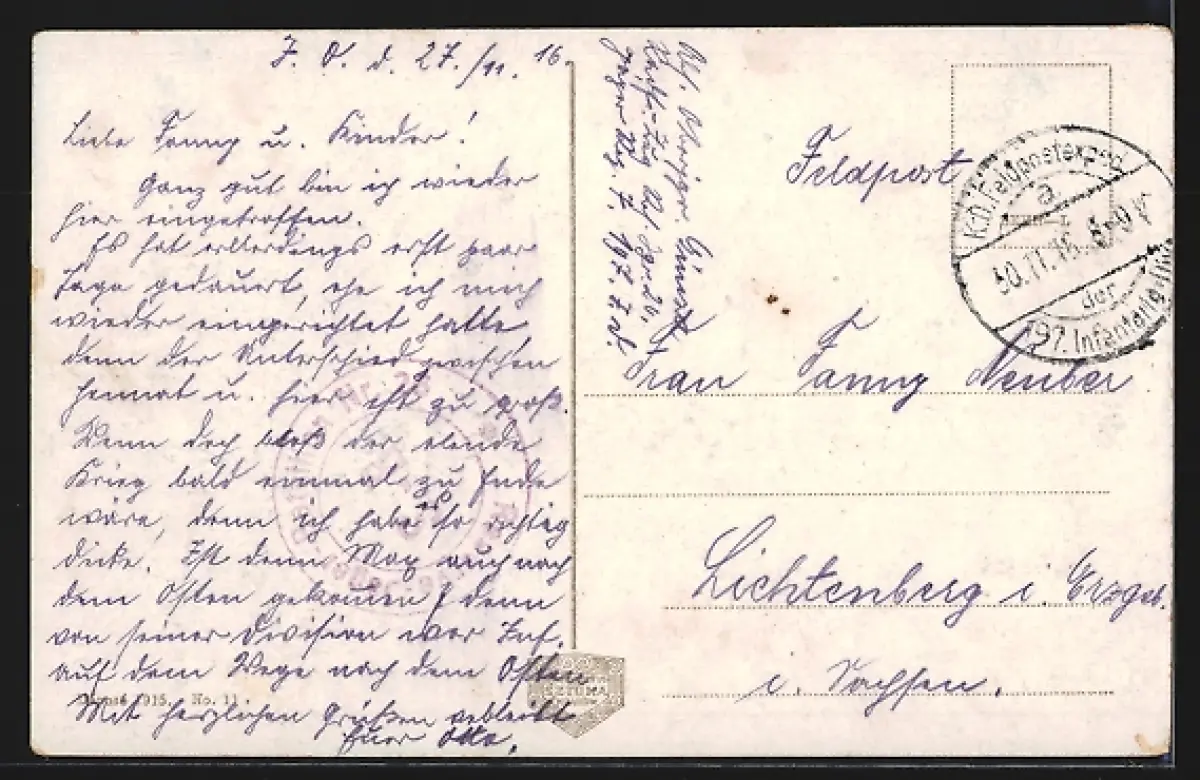 I. O. d. 27./11. 16.
Liebe Fanny u. Kinder!
Ganz gut bin ich wieder
hier eingetroffen.
Es hat allerdings erst paar
Tage gedauert, ehe ich mich
wieder eingerichtet hatte
denn der Unterschied zwischen
Heimat u. hier ist zu groß.
Wenn doch bloß der elende
Krieg bald einmal zu Ende
wäre, denn ich habe es so richtig
dicke. Ist denn Max auch nach
dem Osten gekommen? denn
von seiner Division war Inf.
auf dem Wege nach dem Osten
Mit herzlichen Grüßen verbleibt
Euer Otto.
1915. No. 11.
SZTUKA
Abs. Oberjäger
Feldpost
K.D. Feldpostexped.
a
30.11.16. 5-6 V
der
197. Infanteriediv.
Frau Fanny Neuber
Lichtenberg i. Erzgeb.
i. Sachsen.